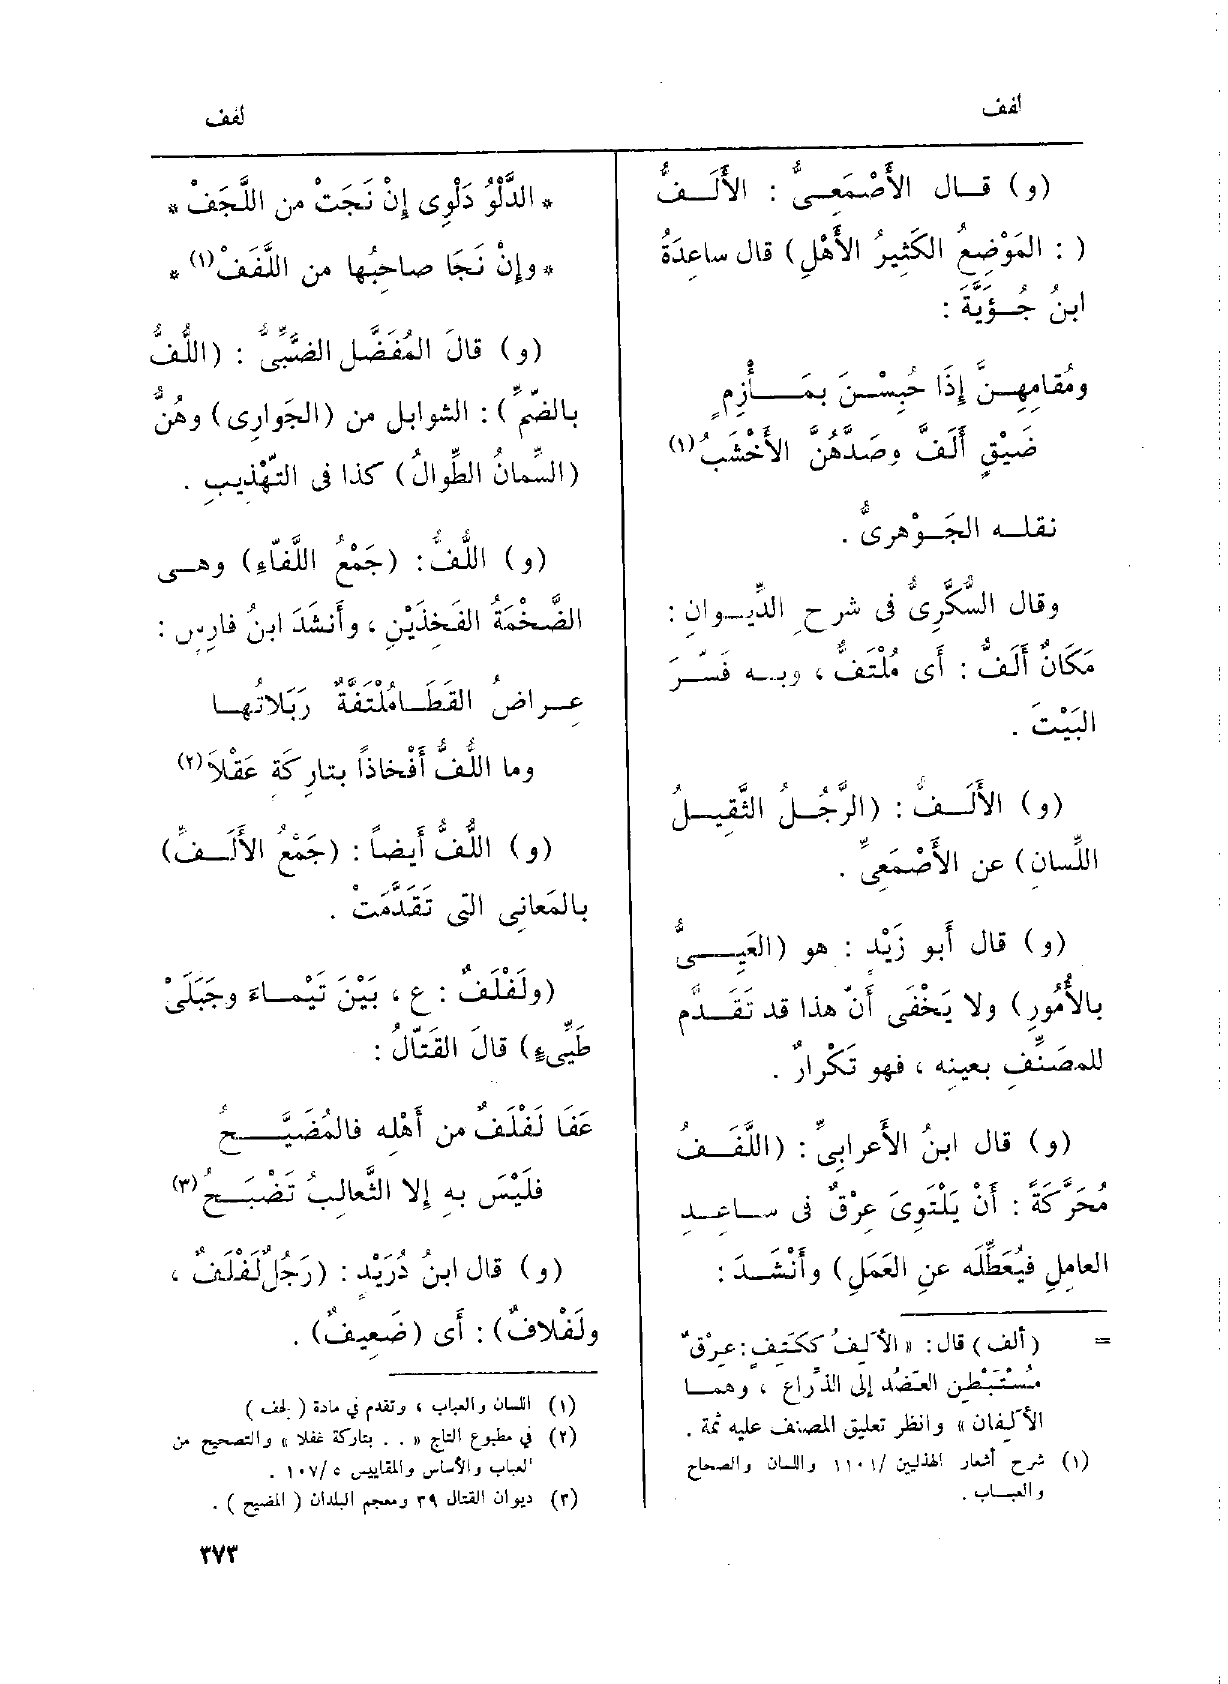 لفف
لفف
(و) قـال الأَصْمَعِـىُّ : الأَلَـفُّ
( : المَوْضِعُ الكَثِيرُ الأَهْلِ) قال ساعِدَةُ
ابنُ جُـؤَيَّةَ :
ومُقامِهِـنَّ إِذَا حُبِسْـنَ بمَـأْزِمٍ
ضَيْقٍ أَلَفَّ وصَدَّهُنَّ الأَخْشَبُ(١)
نقلـه الجَـوْهرىُّ .
وقال السُّكَّرِىُّ فى شرحِ الدِّيـوانِ :
مَكَانٌ أَلَفُّ : أَى مُلْتَفٌّ ، وبـه فَسَّـرَ
البَيْتَ .
(و) الأَلَـفُّ : (الرَّجُـلُ الثَّقِيـلُ
اللِّسانِ) عن الأَصْمَعِىِّ .
(و) قال أَبو زَيْدٍ : هو (العَيِـىُّ
بالأُمُورِ) ولا يَخْفَى أَنّ هذا قد تَقَـدَّم
للمصَنِّفِ بعينِه ، فهو تَكْرارٌ .
(و) قال ابنُ الأَعرابِىِّ : (اللَّفَـفُ
مُحَرَّكَةً : أَنْ يَلْتَوِىَ عِرْقٌ فى سـاعِـدِ
العامِلِ فيُعَطِّلَه عنِ العَمَلِ) وأَنْشَـدَ :
= (ألف) قال: « الألِفُ ككَتِفٍ : عِرْقٌ
مُسْتَبْطِن العَضُد إلى الذِّراع ، وهمـا
الألِفان » وانظر تعليق المصنف عليه ثمة .
(١) شرح أشعار الهذليين /١١٠١ واللسان والصحاح
والعبـاب .
* الدَّلْوُ دَلْوِى إِنْ نَجَتْ من اللَّجَفْ *
* وإِنْ نَجَا صاحِبُها من اللَّفَفْ(١) *
(و) قالَ المُفَضَّل الضَّبِّىُّ : (اللُّفُّ
بالضّمِّ) : الشوابل من (الجَوارِى) وهُنَّ
(السِّمانُ الطِّوالُ) كذا فى التّهْذِيبِ .
(و) اللُّفُّ : (جَمْعُ اللَّفّاءِ) وهـى
الضَّخْمَةُ الفَخِذَيْنِ ، وأَنشَدَ ابنُ فارِس :
عِـراضُ القَطَـا مُلْتَفَّةٌ رَبَلاتُهـا
وما اللُّفُّ أَفْخاذاً بتارِكَةٍ عَقْلاَ(٢)
(و) اللُّفُّ أَيضاً : (جَمْعُ الأَلَـفِّ)
بالمَعانِى التى تَقَدَّمَتْ .
(ولَفْلَفٌ : ع ، بَيْنَ تَيْمـاءَ وجَبَلَىْ
طَيِّىءٍ) قالَ القَتّالُ :
عَفَا لَفْلَفٌ من أَهْلِه فالمُضَيَّـحُ
فلَيْسَ بهِ إلا الثَّعالِبُ تَضْبَـحُ(٣)
(و) قال ابنُ دُرَيْدٍ : (رَجُلٌ لَفْلَفٌ ،
ولَفْلافٌ) : أَى (ضَعِيفٌ) .
(١) اللسان والعباب ، وتقدم في مادة ( لجف )
(٢) في مطبوع التاج « . . بتاركة غفلا » والتصحيح من
العباب والأساس والمقاييس ٥ /١٠٧ .
(٣) ديوان القتال ٣٩ ومعجم البلدان ( المضيح ) .
٣٧٣